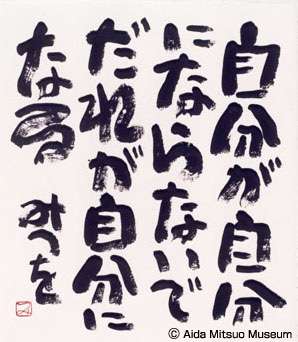 自分が自分
にならないで
だれが自分に
なる みつを
© Aida Mitsuo Museum